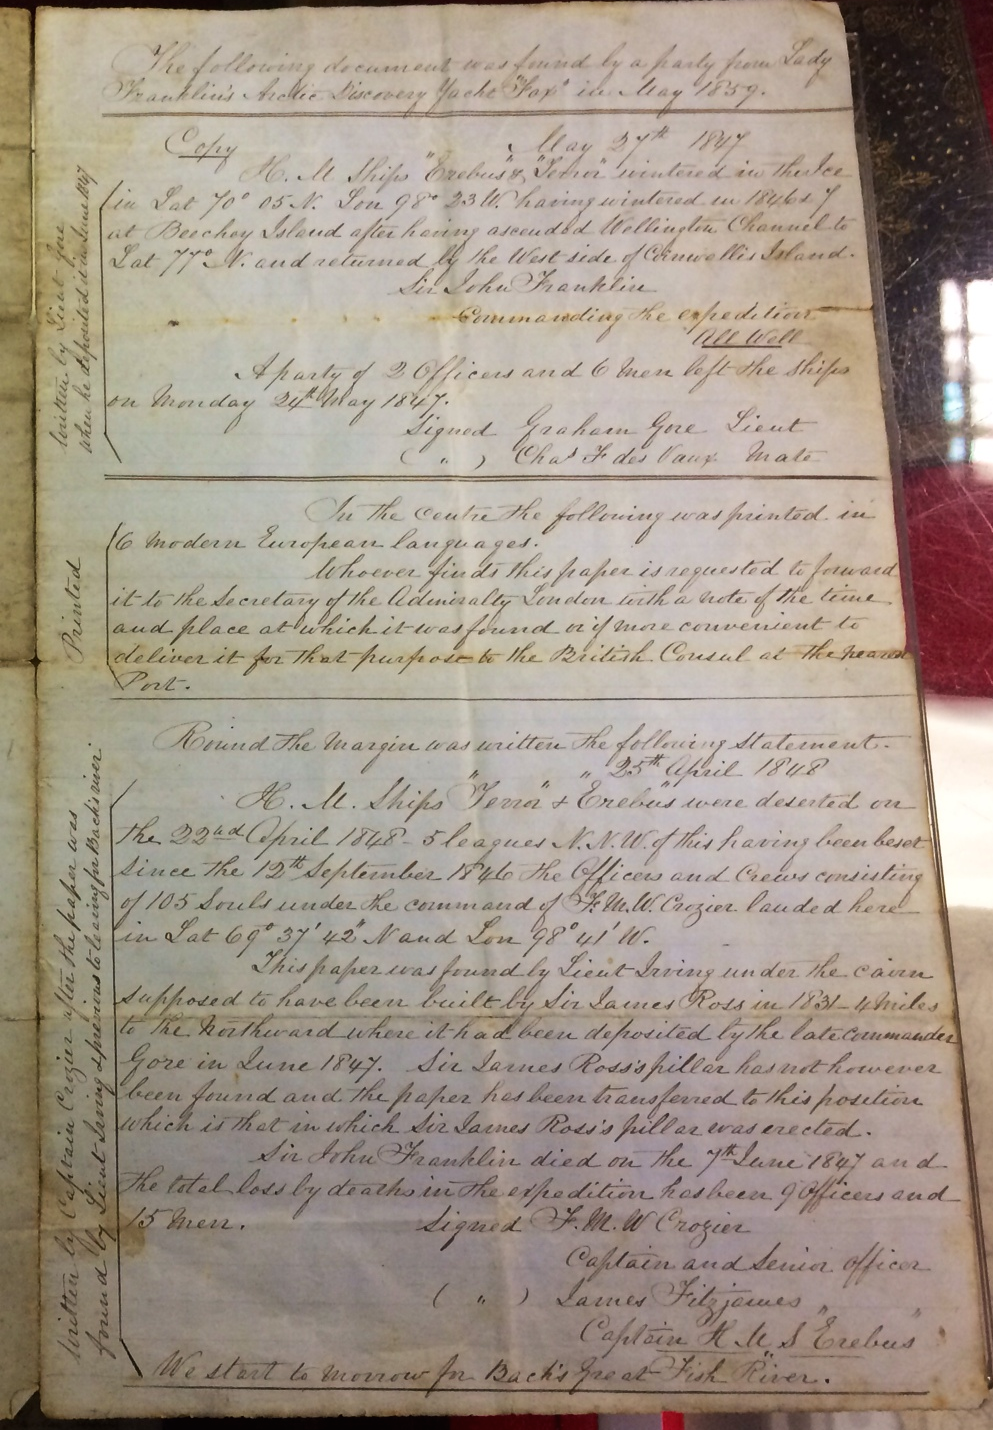 The following document was found by a party from Lady
Franklin's Arctic Discovery Yacht "Fox" in May 1859.
Copy
May 27th 1847
H. M Ships "Erebus" & "Terror" wintered in the Ice
in Lat 70° 05 N. Lon 98° 23 W. having wintered in 1846 & 7
at Beechey Island after having ascended Wellington Channel to
Lat 77° N. and returned by the West side of Cornwallis Island.
Sir John Franklin
Commanding the expedition
All Well
A party of 2 Officers and 6 Men left the Ships
on Monday 24th May 1847.
Signed Graham Gore Lieut
( " ) Chas F des Vaux Mate
Written by Lieut Gore
when he deposited it in June 1847
In the centre the following was printed in
6 modern European languages.
Whoever finds this paper is requested to forward
it to the Secretary of the Admiralty London with a note of the time
and place at which it was found or if more convenient to
deliver it for that purpose to the British Consul at the nearest
Port.
Printed
Round the Margin was written the following statement.
" " 25th April 1848
H. M. Ships "Terror" & Erebus" were deserted on
the 22nd April 1848 - 5 leagues N.N.W. of this having been beset
since the 12th September 1846 the Officers and Crews consisting
of 105 Souls under the command of F.M.W. Crozier landed here
in Lat 69° 37' 42" N and Lon 98° 41' W.
This paper was found by Lieut Irving under the cairn
supposed to have been built by Sir James Ross in 1831 - 4 Miles
to the Northward where it had been deposited by the late commander
Gore in June 1847. Sir James Ross's pillar has not however
been found and the paper has been transferred to this position
which is that in which Sir James Ross's pillar was erected.
Sir John Franklin died on the 7th June 1847 and
the total loss by deaths in the expedition has been 9 Officers and
15 Men.
Signed F. M. W Crozier
Captain and Senior officer
( " ) James Fitzjames " "
Captain H M S Erebus
We start to morrow for Back's Great Fish River.
Written by Captain Crozier after the paper was
found by Lieut Irving & previous to leaving for Back's river